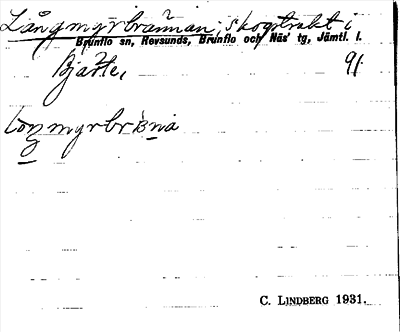 Långmyrbrännan, skogstrakt i
Brunflo sn, Revsunds, Brunflo och Näs' tg, Jämtl. l.
Bjärte, 91
C. LINDBERG 1931.